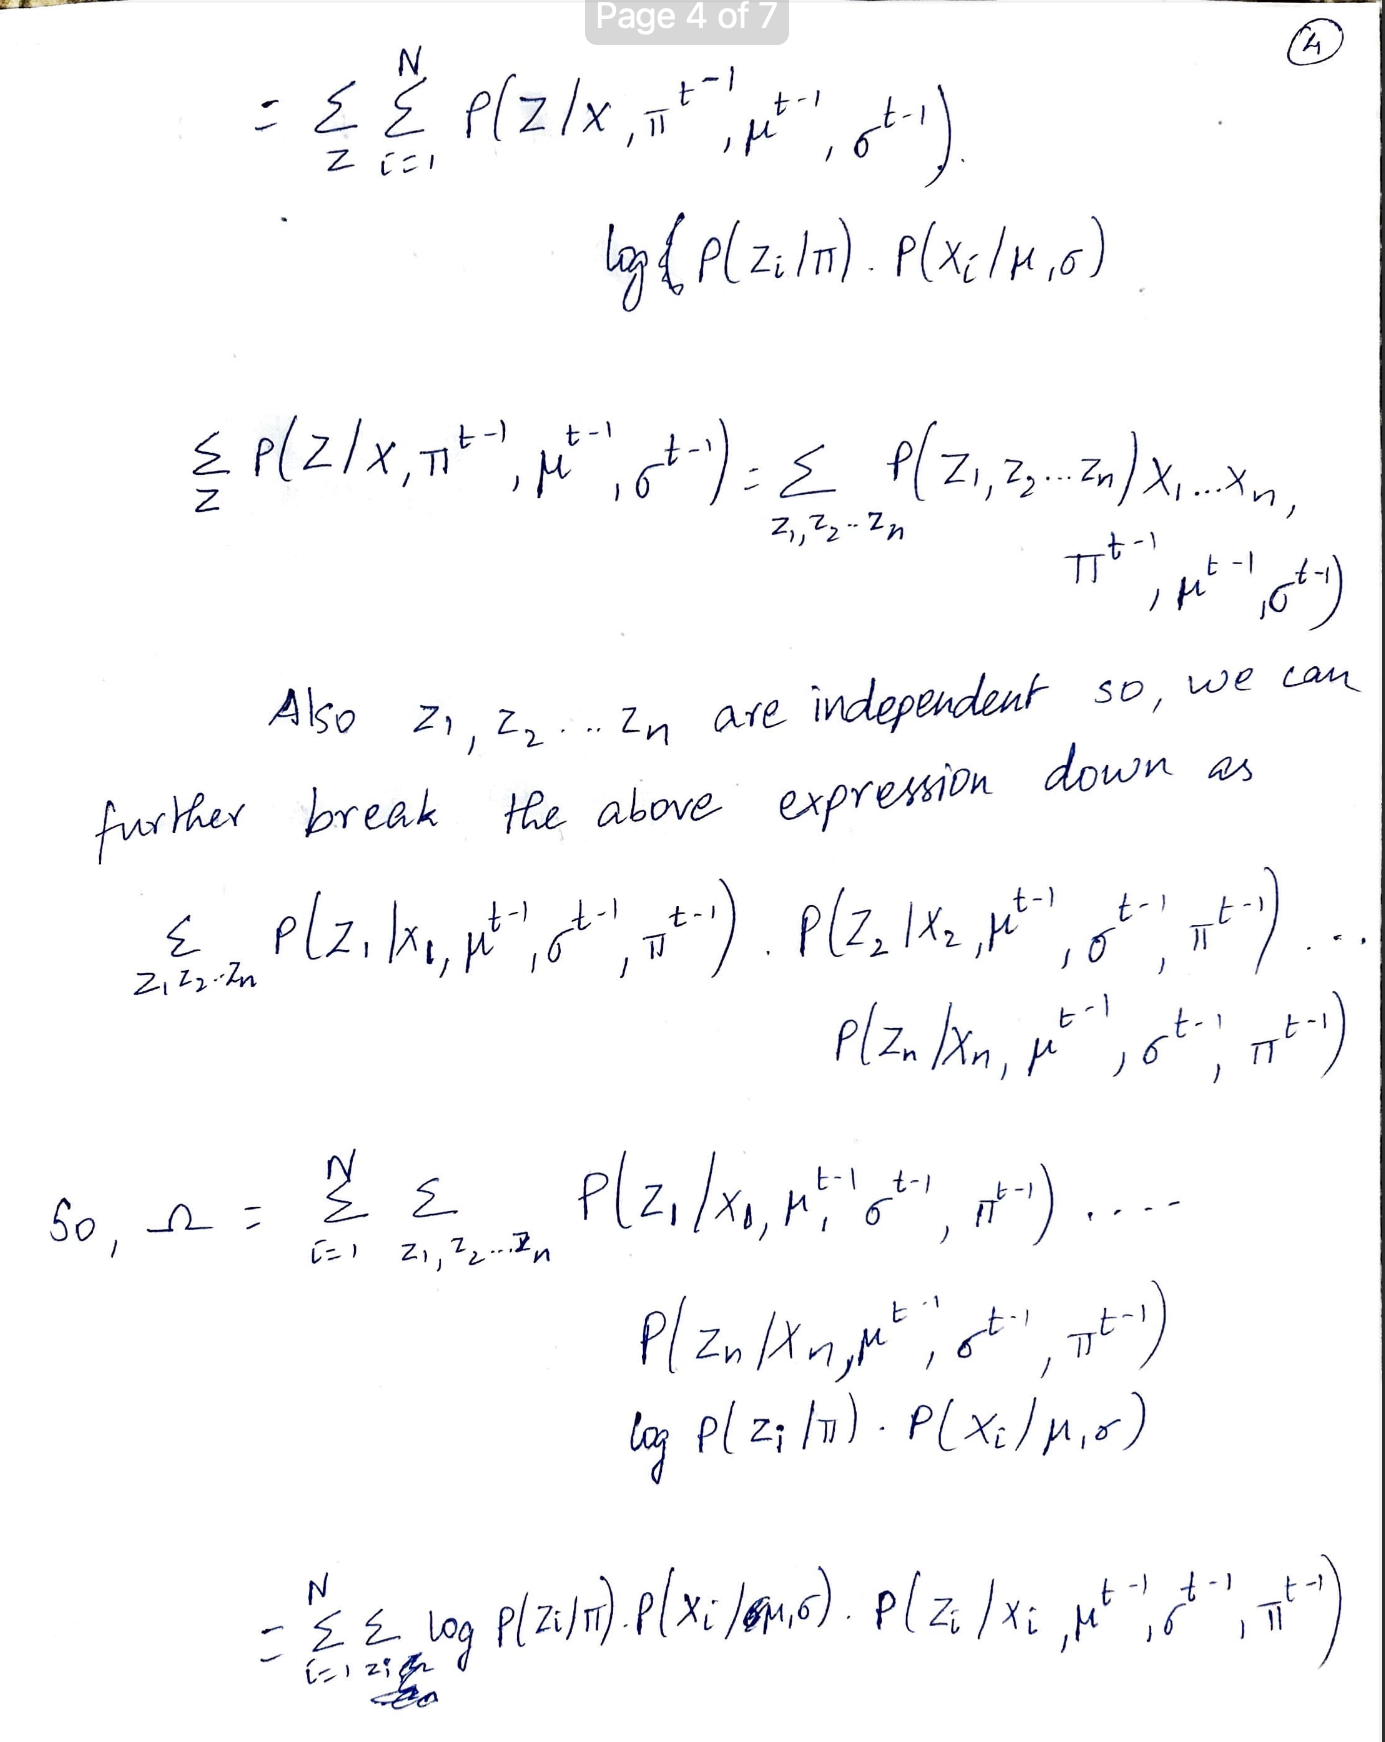 Page 4 of 7
4
= Σ_Z Σ_{i=1}^{N} P(Z/X, π^{t-1}, μ^{t-1}, σ^{t-1}).
log{ P(Z_i/π) . P(X_i/μ,σ)
Σ_Z P(Z/X, π^{t-1}, μ^{t-1}, σ^{t-1}) = Σ_{Z_1, Z_2 .. Z_n} P(Z_1, Z_2 ... Z_n / X_1 ... X_n,
π^{t-1}, μ^{t-1}, σ^{t-1})
Also Z_1, Z_2 .... Z_n are independent so, we can
further break the above expression down as
Σ_{Z_1 Z_2 .. Z_n} P(Z_1 | X_1, μ^{t-1}, σ^{t-1}, π^{t-1}) . P(Z_2 | X_2, μ^{t-1}, σ^{t-1}, π^{t-1}) ...
P(Z_n / X_n, μ^{t-1}, σ^{t-1}, π^{t-1})
So, Ω = Σ_{i=1}^{N} Σ_{Z_1, Z_2 ... Z_n} P(Z_1 / X_1, μ^{t-1}, σ^{t-1}, π^{t-1}) ....
P(Z_n / X_n, μ^{t-1}, σ^{t-1}, π^{t-1})
log P(Z_i / π) . P(X_i / μ, σ)
= Σ_{i=1}^{N} Σ_{Z_i} log P(Z_i/π) . P(X_i / μ,σ) . P(Z_i / X_i, μ^{t-1}, σ^{t-1}, π^{t-1})